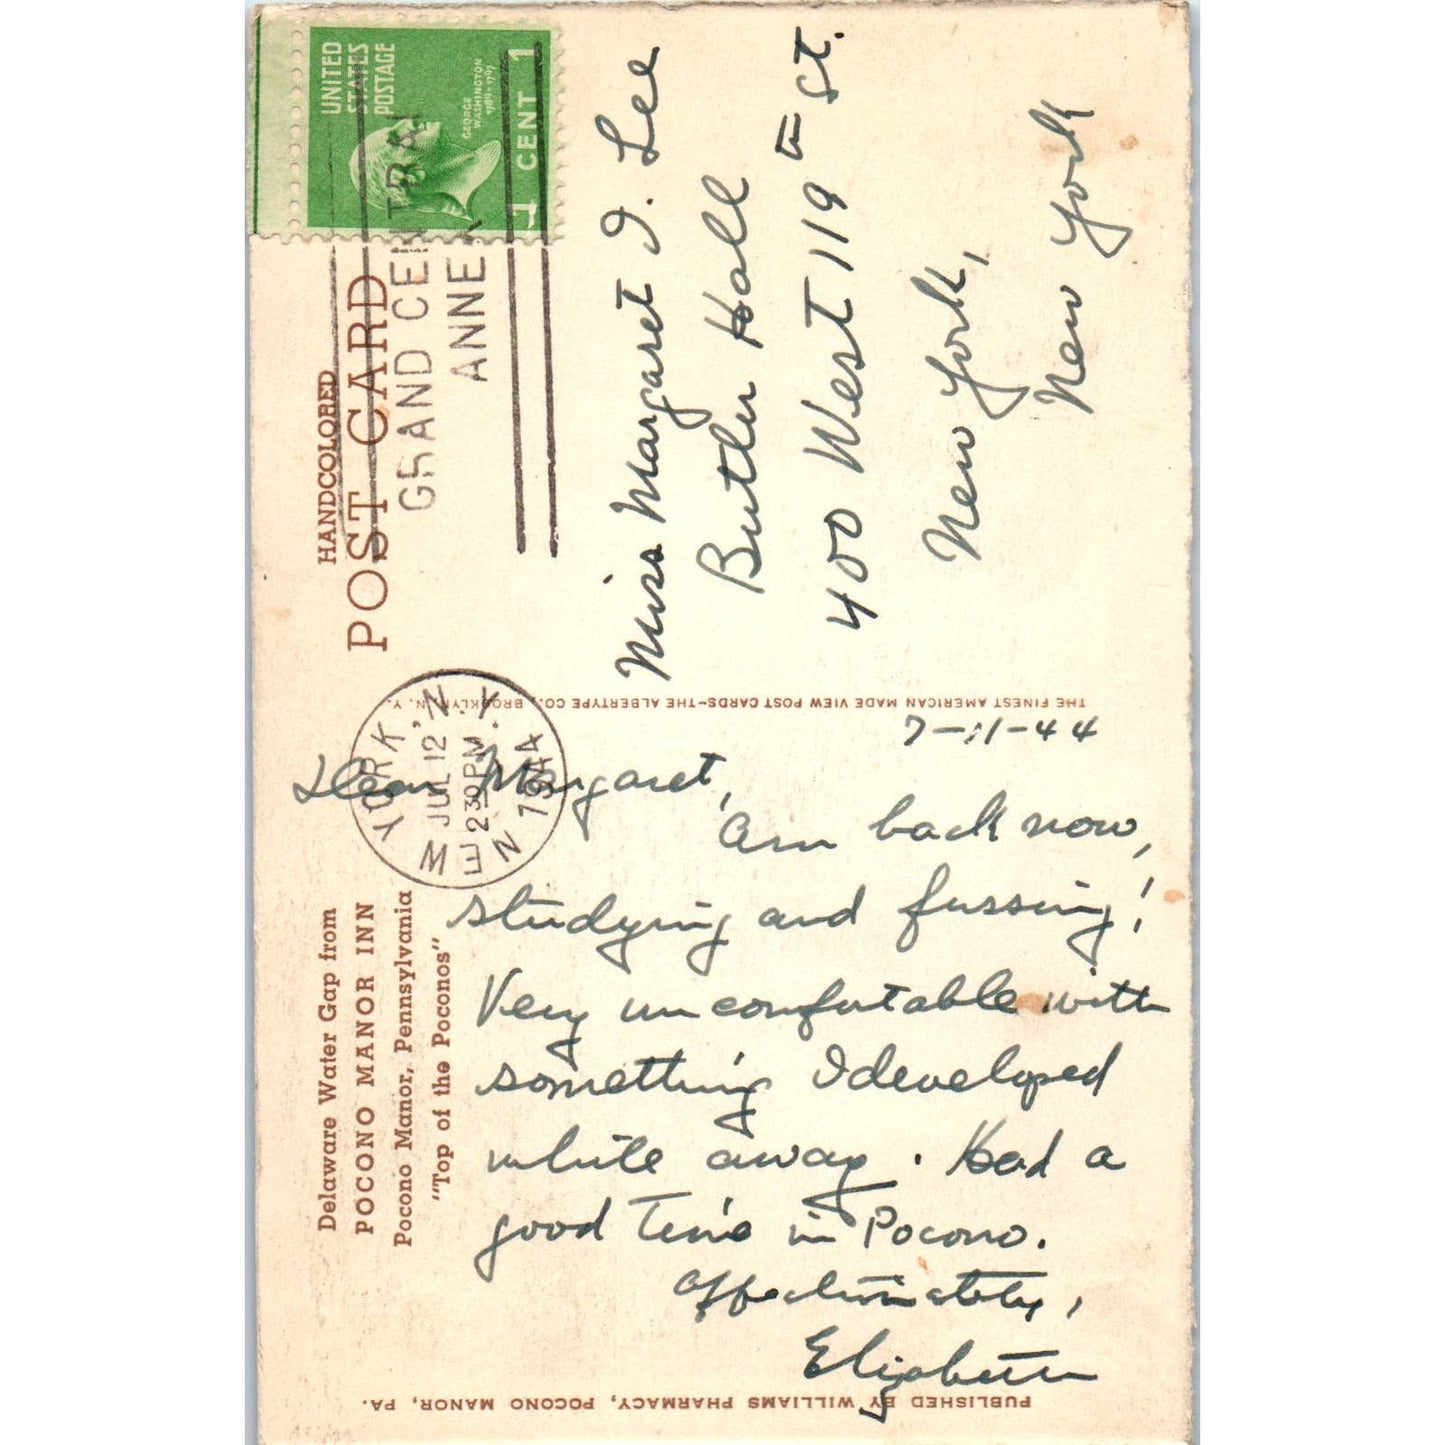 HANDCOLORED
POST CARD
UNITED
STATES
POSTAGE
GEORGE
WASHINGTON
1789-1797
1 CENT 1
GRAND CENTRAL
ANNEX
NEW YORK, N.Y.
JUL 12
2 30 PM
1944
Miss Margaret I. Lee
Butler Hall
400 West 119th St.
New York,
New York
THE FINEST AMERICAN MADE VIEW POST CARDS-THE ALBERTYPE CO., BROOKLYN, N.Y.
Delaware Water Gap from
POCONO MANOR INN
Pocono Manor, Pennsylvania
"Top of the Poconos"
7-11-44
Dear Margaret,
Am back now,
studying and fussing!
Very uncomfortable with
something I developed
while away. Had a
good time in Pocono.
Affectionately,
Elizabeth
PUBLISHED BY WILLIAMS PHARMACY, POCONO MANOR, PA.